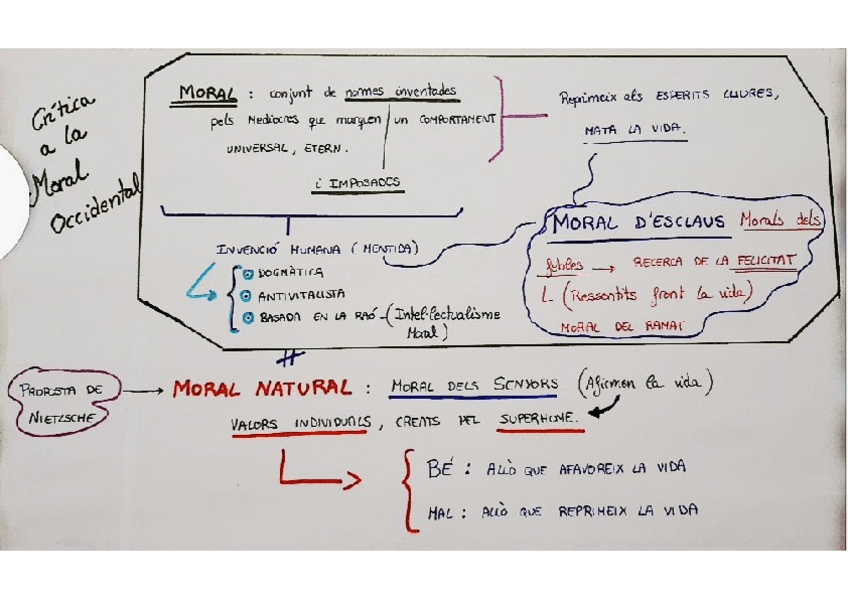 Crítica
a la
Moral
Occidental
MORAL : conjunt de normes inventades
pels mediocres que marquen un COMPORTAMENT
UNIVERSAL, ETERN.
i IMPOSADES
Reprimeix als ESPERITS LLIURES,
MATA LA VIDA.
INVENCIÓ HUMANA (MENTIDA)
DOGMÀTICA
ANTIVITALISTA
BASADA EN LA RAÓ - (Intel·lectualisme
Moral)
MORAL D'ESCLAUS Morals dels
febles → RECERCA DE LA FELICITAT
(Ressentits front la vida)
MORAL DEL RAMAT
PROPOSTA DE
NIETZSCHE
MORAL NATURAL : MORAL DELS SENYORS (Afirmen la vida)
VALORS INDIVIDUALS, CREATS PEL SUPERHOME.
BÉ : ALLÒ QUE AFAVOREIX LA VIDA
MAL : ALLÒ QUE REPRIMEIX LA VIDA